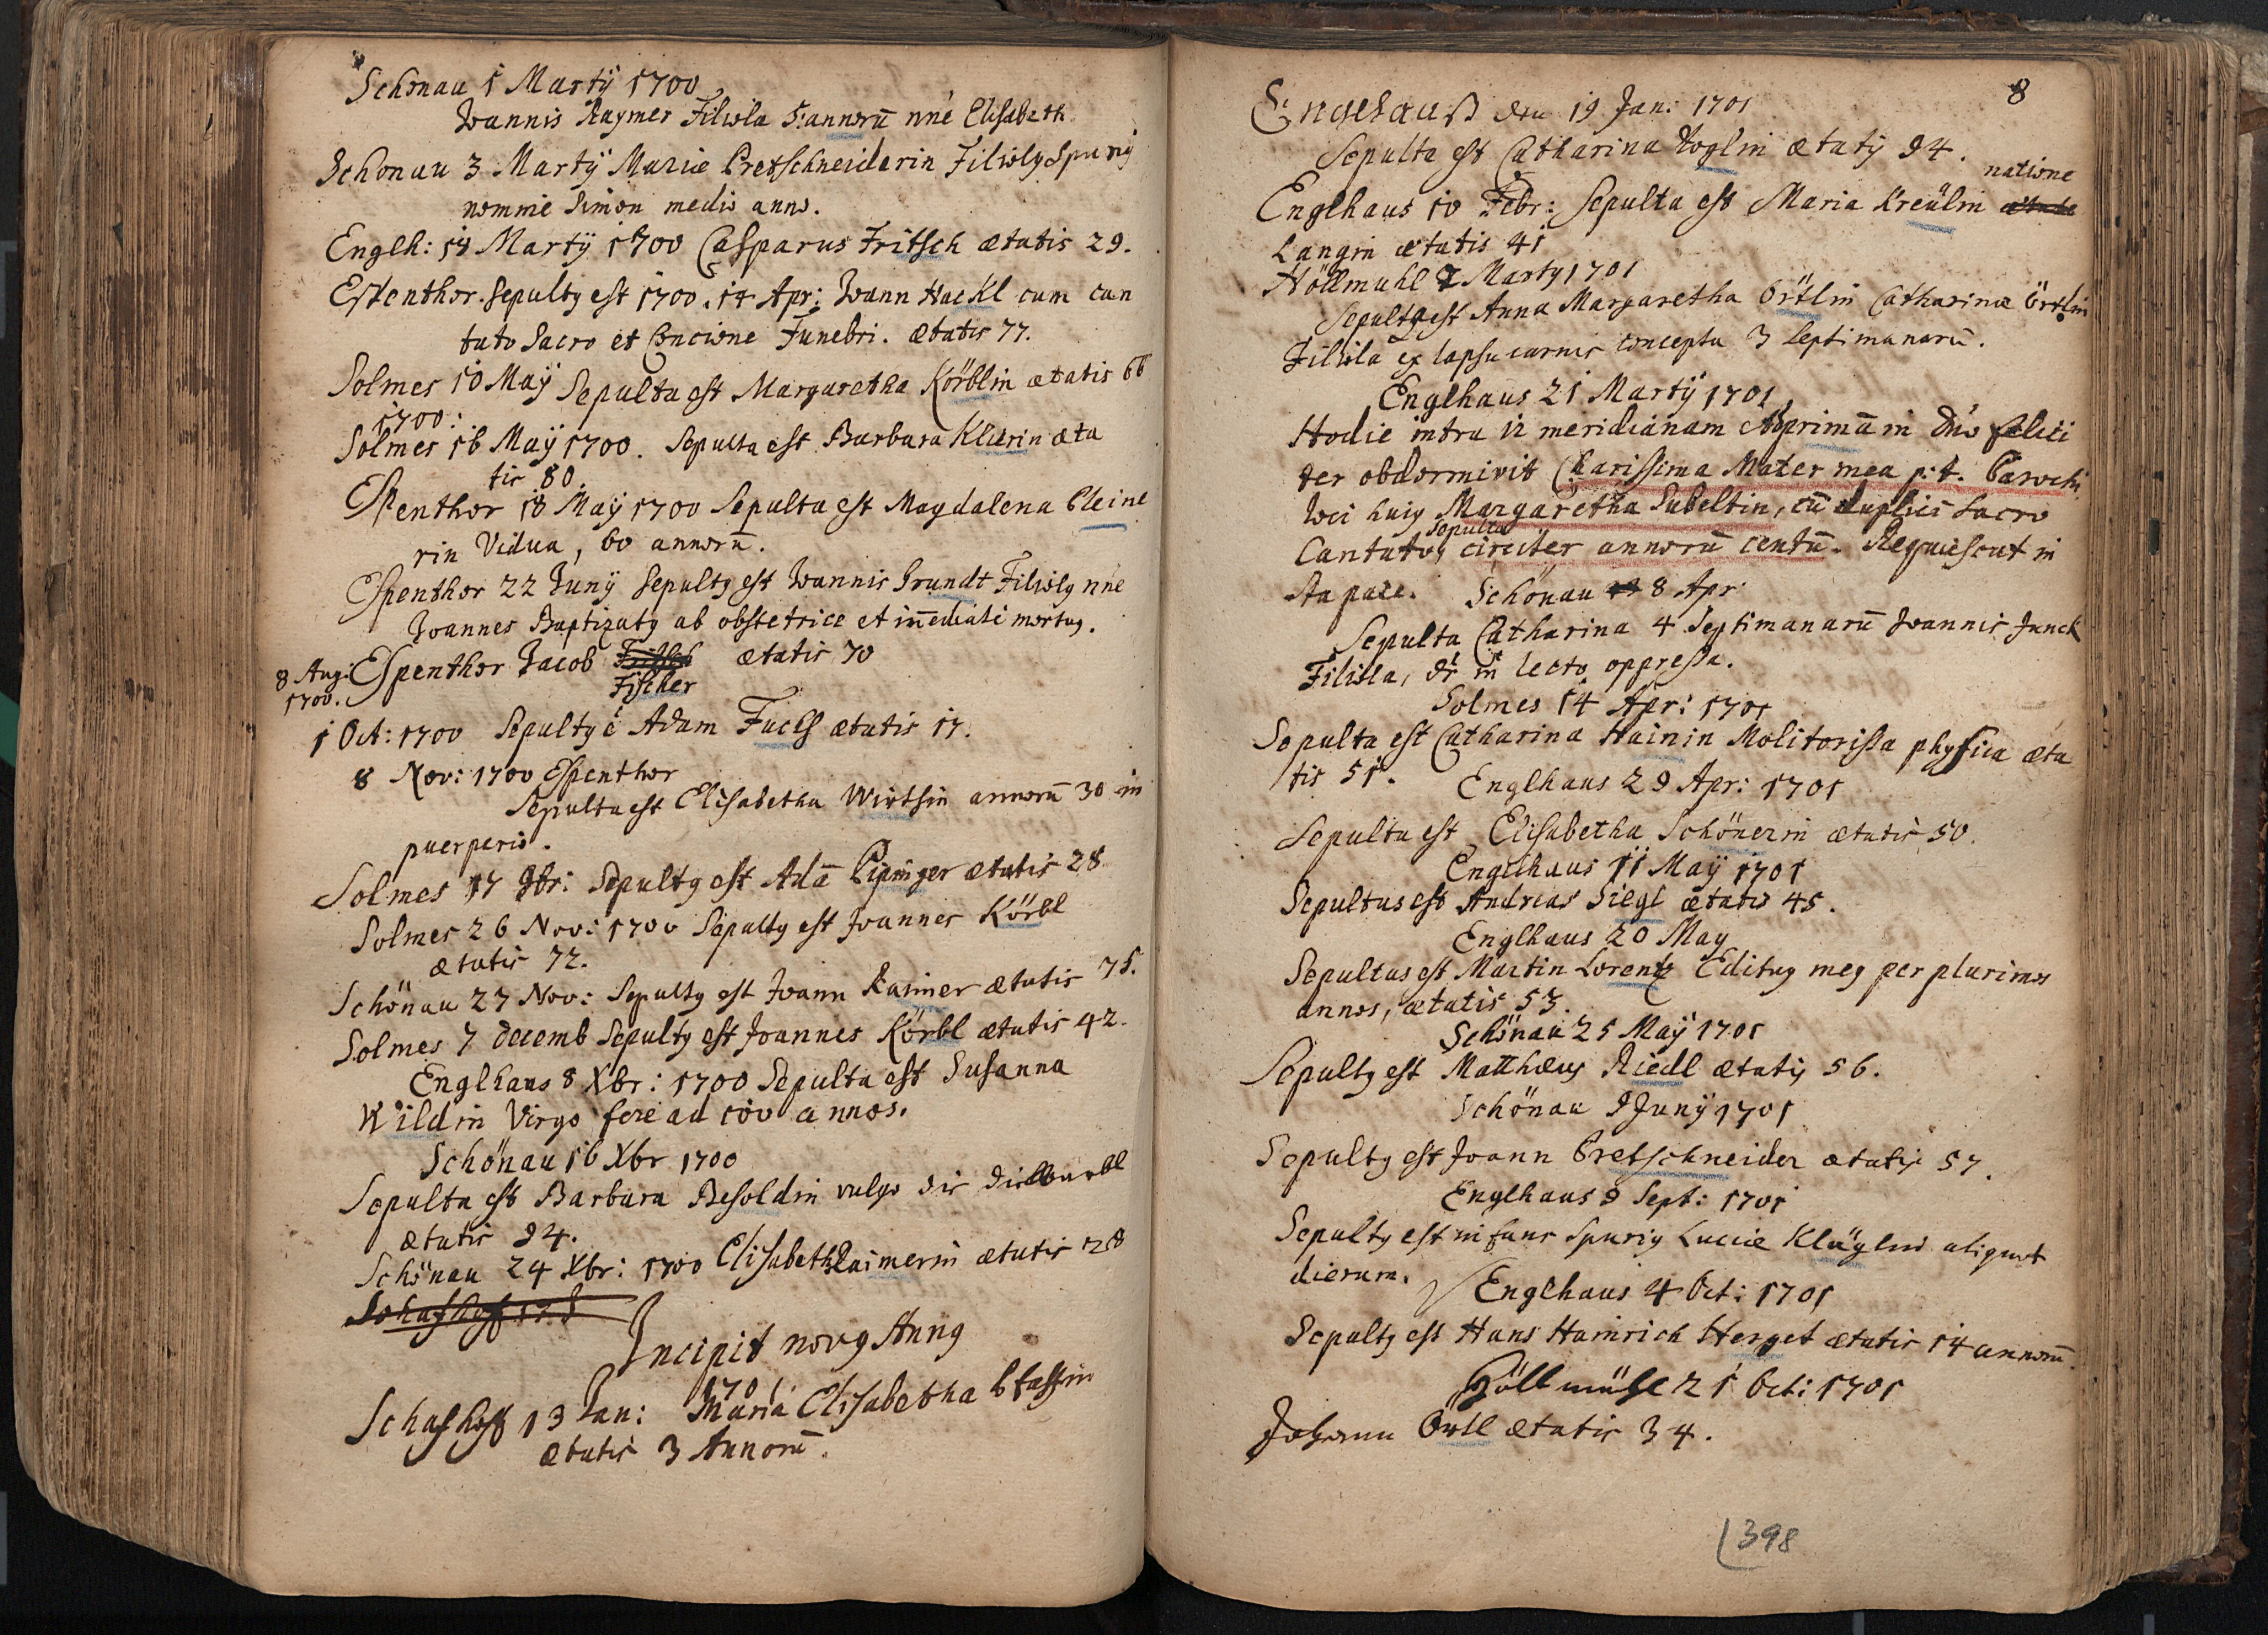 Schönau 1 Martÿ 1700
Joannis Raymer Filiola 5: annorū nn̄e Elisabeth
Schönau 3 Martÿ Mariæ Pretschneiderin Filiolg Spurÿ
nomine Simon medio anno.
Englh: 14 Martÿ 1700 Casparus Fritsch ætatis 29.
Espenthor. Sepultg est 1700. 14 Apr: Joann Hackl cum can
tato Sacro et Concione Funebri. ætatis 77.
Solmes 10 Maÿ Sepulta est Margaretha Körblin ætatis 66
1700:
Solmes 16 Maÿ 1700. Sepulta est Barbara Klierin æta
tis 80.
Espenthor 18 Maÿ 1700 Sepulta est Magdalena Pleine
rin Vidua, 60 annorū.
Espenthor 22 Junÿ Sepultg est Joannis Grundt Filiolg nn̄e
Joannes Baptizatg ab obstetrice et im̄ediatè mortug.
8 Aug: Espenthor Jacob Fritsch ætatis 70
1700. Fischer
1 Oct: 1700 Sepultg ē Adam Fuchs ætatis 17.
8 Nov: 1700 Espenthor
Sepulta est Elisabetha Wirtsin annorū 30 in
puerperio.
Solmes 17 9br: Sepultg est Adā Pipinger ætatis 28
Solmes 26 Nov: 1700 Sepultg est Joannes Körbl
ætatis 72.
Schönau 27 Nov: Sepultg est Joann Raimer ætatis 75.
Solmes 7 decemb Sepultg est Joannes Körbl ætatis 42.
Englhaus 8 Xbr: 1700 Sepulta est Susanna
Wildin Virgo fere ad 100 annos.
Schönau 16 Xbr 1700
Sepulta est Barbara Besoldin vulgo die
ætatis 94.
Schönau 24 Xbr: 1700 Elisabeth Raimerin ætatis 28
Schafhof 17
Incipit novg Anng
1701.
Schafhoff 13 Jan: Maria Elisabetha Stassin
ætatis 3 Annorū.
8
Englhauß den 19 Jan: 1701
Sepulta est Catharina Voglin ætatÿ 94.
natione
Englhaus 10 Febr: Sepulta est Maria Kreülin ætate
Langin ætatis 41
Höllmuhl 7 Martÿ 1701
Sepultg est Anna Margaretha Örtlin Catharinæ Örtlin
Filiola ex lapsu carnis concepta 3 Septimanarū.
Englhaus 21 Martÿ 1701
Hodie intra 12 meridianam et primā in Dn̄o felici
ter obdormivit Charissima Mater mea p: t. Parochi
loci huig Margaretha Subeltin, cū duplici sacro
sepulta
Cantato, circiter annorū centū. Requiescat in
Sta pace. Schönau 8 Apr
Sepulta Catharina 4 Septimanarū Joannis Junck
Filiola, in lecto oppressa.
Solmes 14 Apr: 1701
Sepulta est Catharina Hainin Molitorissa physica æta
tis 51. Englhaus 29 Apr: 1701
Sepulta est Elisabetha Schönerin ætatis 50.
Englhaus 11 Maÿ 1701
Sepultus est Andreas Siegl ætatis 45.
Englhaus 20 May
Sepultus est Martin Lorentz Editug meg per plurimos
annos, ætatis 53.
Schönau 25 Maÿ 1701
Sepultg est Matthæus Riedl ætatis 56.
Schönau 9 Junÿ 1701
Sepultg est Joann Pretschneider ætatis 57.
Englhaus 9 Sept: 1701
Sepultg est infans Spurig Luciæ Kläglin aliquot
dierum. Englhaus 4 Oct: 1701
Sepultg est Hans Hainrich Herget ætatis 14 annorū.
Höllmühl 21 Oct: 1701
Johann Örtl ætatis 34.
398